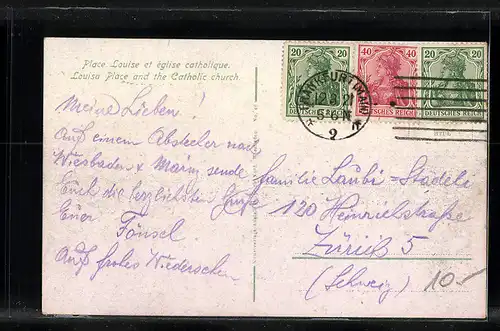 Place Louise et église catholique.
Louisa Place and the Catholic church.
20 40 20
DEUTSCHES REICH DEUTSCHES REICH DEUTSCHES REICH
FRANKFURT (MAIN)
5-6 N
2
Meine Lieben!
Auf einem Abstecher nach
Wiesbaden & Mainz sende
Euch die herzlichsten Grüße
Euer
Auf frohes Wiedersehen
Familie Laubi-Stadeli
120 Heinrichstraße
Zürich 5
(Schweiz)
10.-